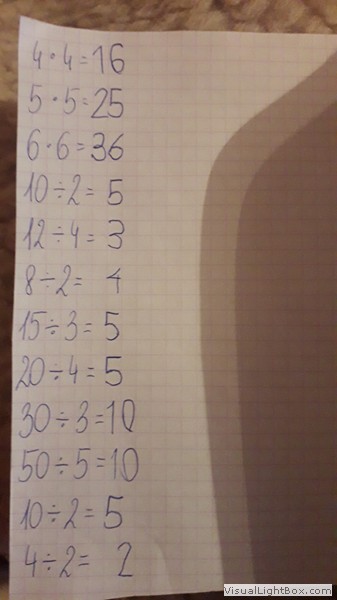 4·4=16
5·5=25
6·6=36
10÷2=5
12÷4=3
8÷2=4
15÷3=5
20÷4=5
30÷3=10
50÷5=10
10÷2=5
4÷2=2
VisualLightBox.com